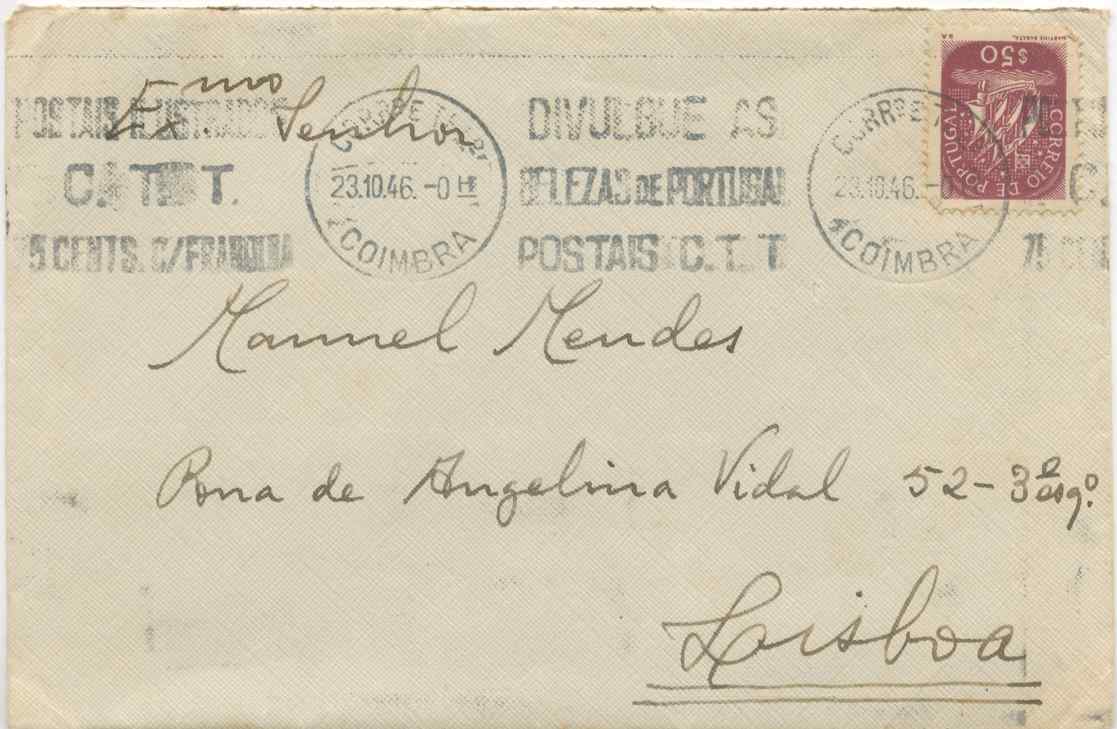 Exmo. Senhor
Manuel Mendes
Rua de Angelina Vidal 52-3º esqº.
Lisboa
POSTAIS ILUSTRADOS
C.T.T.
75 CENTS. C/FRANQUIA
23.10.46. -0 H
COIMBRA
DIVULGUE AS
BELEZAS DE PORTUGAL
POSTAIS C.T.T
23.10.46.
COIMBRA
$50
CORREIO DE PORTUGAL